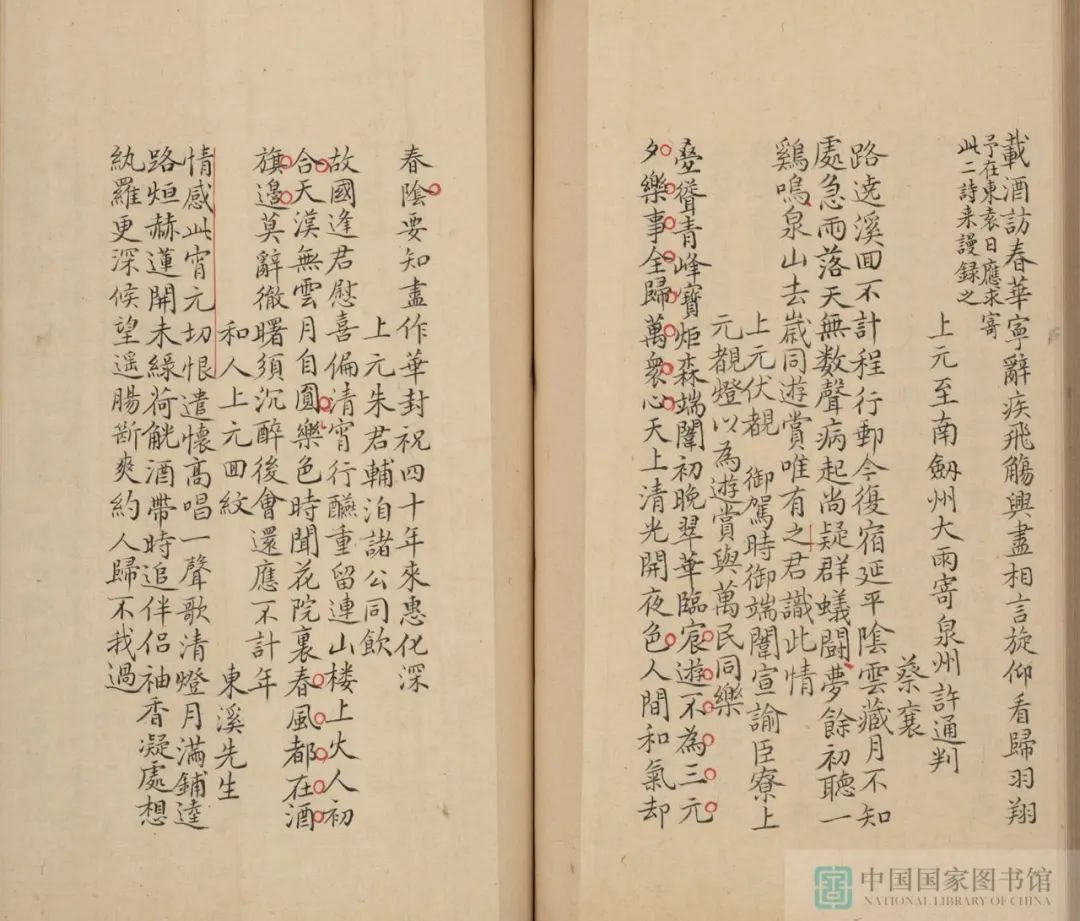 載酒訪春華寧辭疾飛觴興盡相言旋仰看歸羽翔
予在東袁日應求寄
此二詩来謾録之
上元至南劔州大雨寄泉州許通判
蔡襄
路遶溪回不計程行郵今復宿延平陰雲藏月不知
處急雨落天無数聲病起尚疑群蟻闘夢餘初聽一
鷄鳴泉山去嵗同遊賞唯有之君識此情
上元伏覩 御駕時御端闈宣諭臣寮上
元覩燈以為遊賞與萬民同樂
疊聳青峰寶炬森端闈初晚翠華臨宸遊不為三元
夕樂事全歸萬衆心天上清光開夜色人間和氣却
春陰要知盡作華封祝四十年来惠化深
上元朱君輔洎諸公同飲
故國逢君慰喜偏清宵行醼重留連山楼上火人初
合天漠無雲月自圓樂色時聞花院裏春風都在酒
旗邊莫辭徹曙須沉醉後會還應不計年
和人上元回紋
東溪先生
情感此宵元切恨遣懷高唱一聲歌清燈月滿鋪逵
路烜赫蓮開未緑荷觥酒帶時追伴侣袖香凝處想
紈羅更深候望遥腸斷爽約人歸不我過
中国国家图书馆
NATIONAL LIBRARY OF CHINA